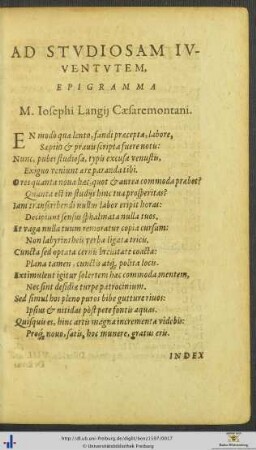 AD STVDIOSAM IV-
VENTVTEM,
EPIGRAMMA
M. Iosephi Langij Cæsaremontani.
EN modò quæ lento, fandi præcepta, labore,
Sæpiùs & prauis scripta fuere notis:
Nunc, pubes studiosa, typis excusa venustis,
Exiguo veniunt ære paranda tibi.
O res quanta noua hæc, quot & antea commoda præbet?
Quanta est in studijs hinc tua prosperitas?
Iam transscribendi nullus labor eripit horas:
Decipiunt sensus sphalmata nulla tuos,
Et vaga nulla tuum remoratur copia cursum:
Non labyrintheis verba ligata tricis.
Cuncta sed optata cernis breuitate coacta:
Plana tamen, cunctis atq́ polita locis.
Exstimulent igitur solertem hæc commoda mentem,
Nec sint desidiæ turpe patrocinium.
Sed simul hos pleno puros bibe gutture riuos:
Ipsius & nitidas pòst pete fontis aquas.
Quisquis es, hinc artis magna incrementa videbis:
Proq́ nouo, satis, hoc munere, gratus eris.
INDEX
http://dl.ub.uni-freiburg.de/diglit/
© Universitätsbibliothek Freiburg